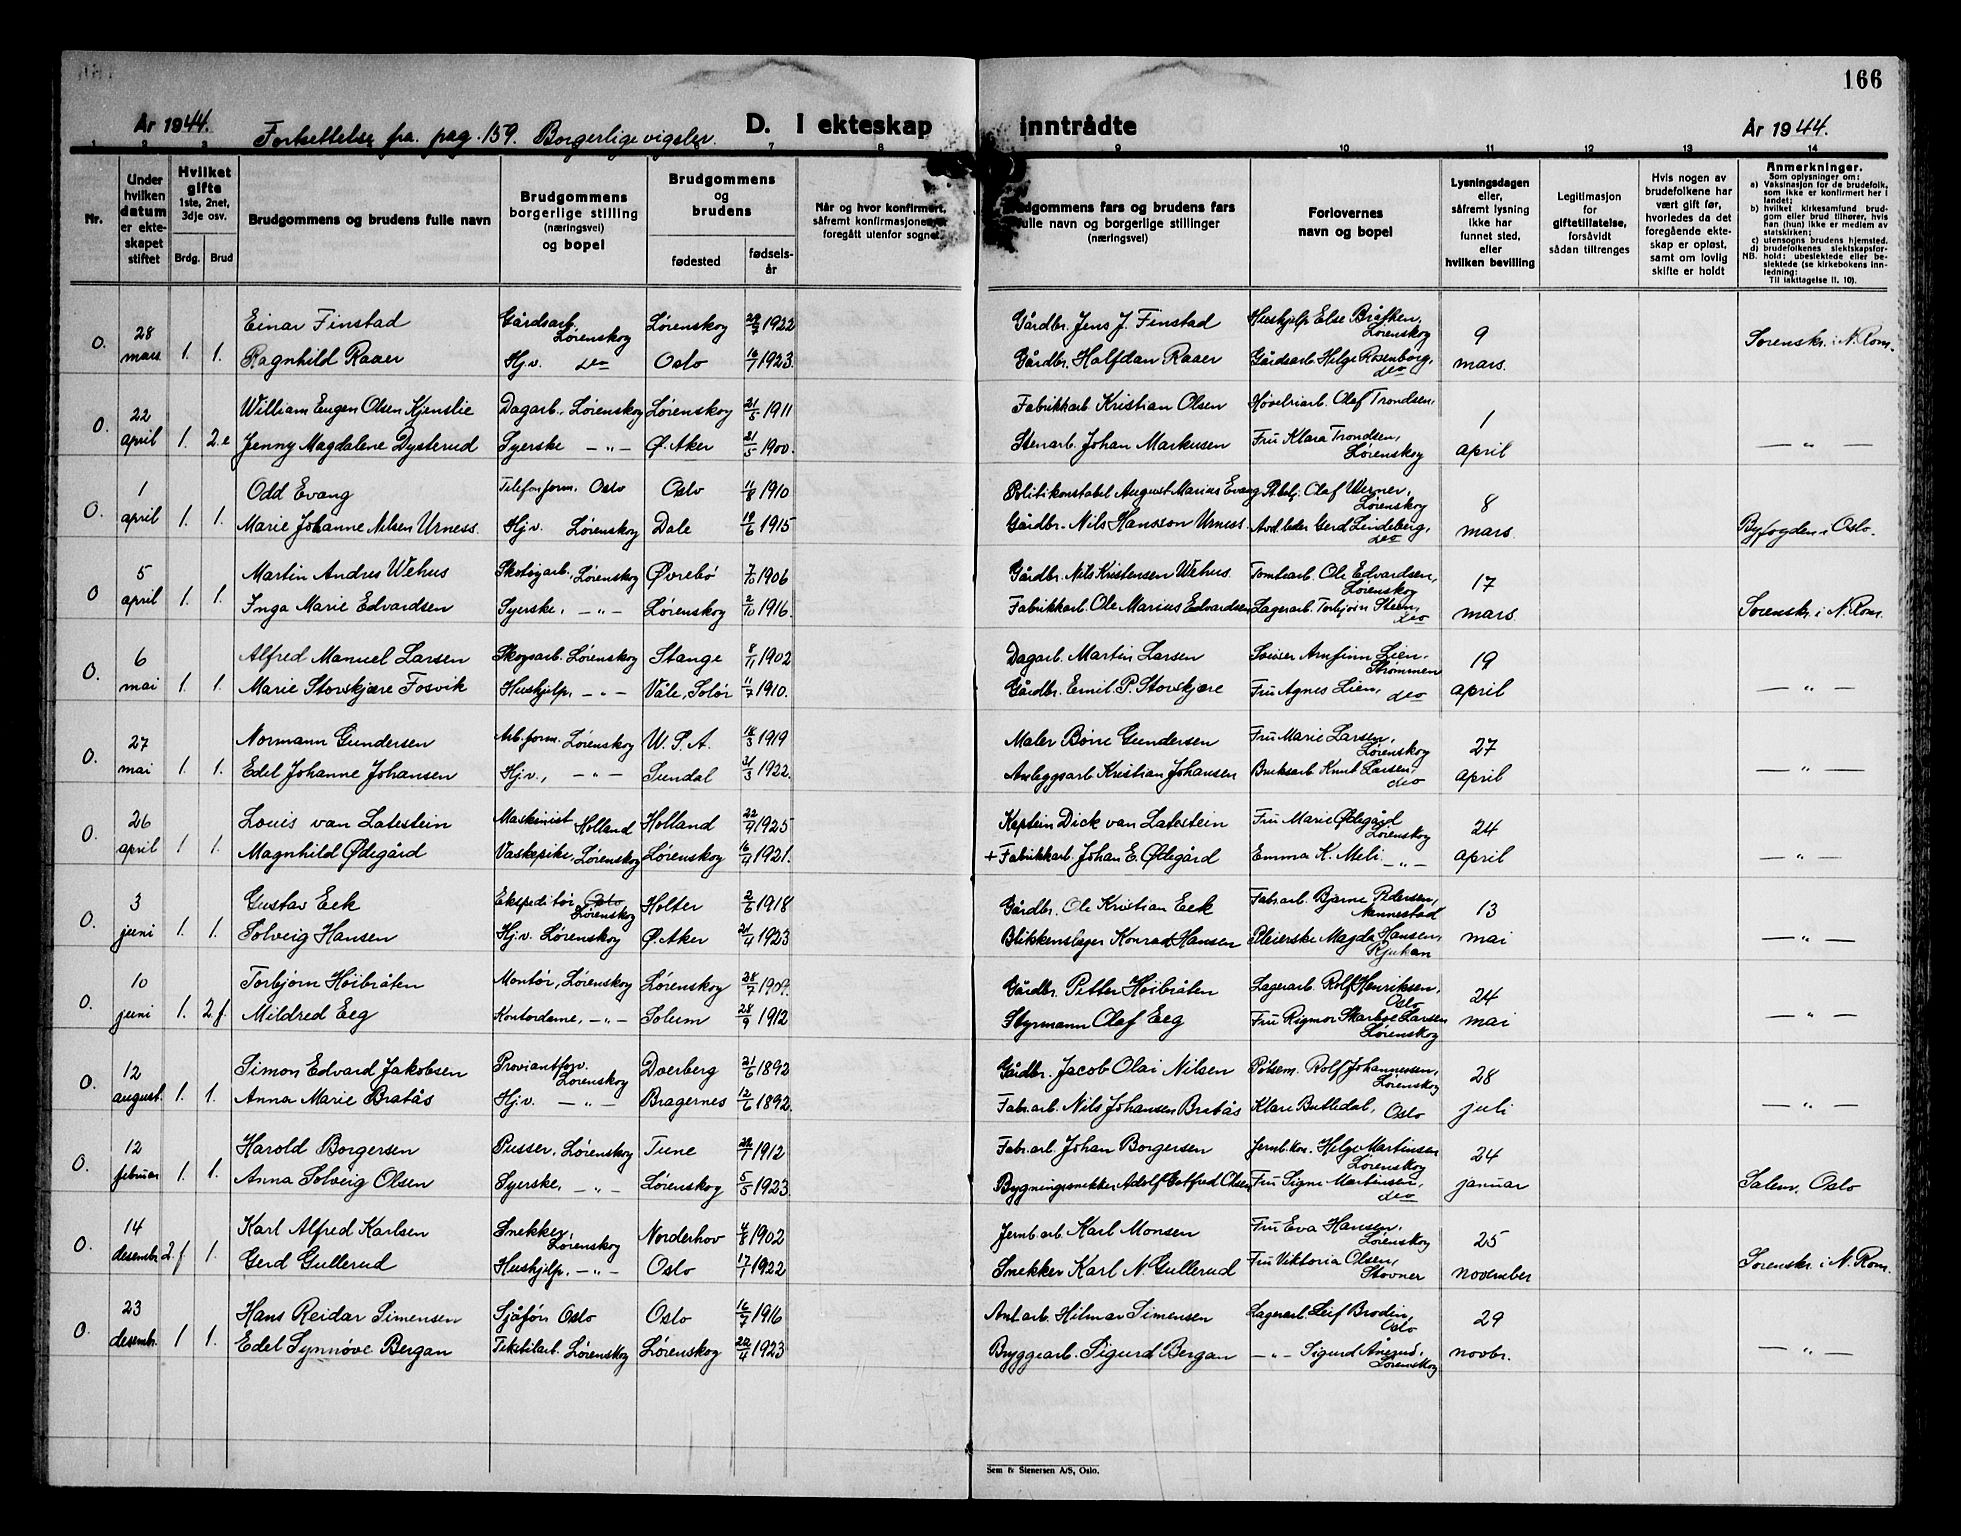 166
År 1944. Fortsettelse fra pag. 159. Borgerlige vigsler. D. I ekteskap inntrådte År 1944.
1 2 3 7 8 9 10 11 12 13 14
Nr.
Under hvilken datum er ekteskapet stiftet
Hvilket gifte 1ste, 2net, 3dje osv.
Brdg. Brud
Brudgommens og brudens fulle navn
Brudgommens borgerlige stilling (næringsvei) og bopel
Brudgommens og brudens
fødested fødselsår
Når og hvor konfirmert, såfremt konfirmasjonen er foregått utenfor sognet.
Brudgommens fars og brudens fars fulle navn og borgerlige stillinger (næringsvei)
Forlovernes navn og bopel
Lysningsdagen eller, såfremt lysning ikke har funnet sted, eller hvilken bevilling
Legitimasjon for giftetillatelse, forsåvidt sådan tiltrenges
Hvis nogen av brudefolkene har vært gift før, hvorledes da det foregående ekteskap er opløst, samt om lovlig skifte er holdt
Anmerkninger.
Som oplysninger om:
a) Vaksinasjon for de brudefolk, som ikke er konfirmert her i landet;
b) hvilket kirkesamfund brudgom eller brud tilhører, hvis han (hun) ikke er medlem av statskirken;
c) utensogns brudens hjemsted.
d) brudefolkenes slektskapsforhold: ubeslektede eller beslektede (se kirkebokens innledning:
NB.
Til iakttagelse II. 10).
0. 28 mars 1. 1. Einar Finstad Gårdsarb. Lørenskog Lørenskog 1922 Gårdbr. Jens J. Finstad Hushjelp Else Bråthen, Lørenskog 9 mars. Sorenskr. i N. Rom.
Ragnhild Raaer Hj.v. deo Oslo 16/7 1923. Gårdbr. Halfdan Raaer Gårdsarb. Helge Rosenborg, deo
0. 22 april 1. 2.e William Eugen Olsen Kjenslie Dagarb., Lørenskog Lørenskog 21/5 1911 Fabrikkarb. Kristian Olsen Høvleriarb. Olaf Trondsen, 1 april — " —
Jenny Magdalene Dysterud Syerske — " — Ø. Aker 21/5 1900. Stenarb. Johan Markusen Fru Klara Trondsen, Lørenskog
0. 1 april 1. 1. Odd Evang Telefonform. Oslo Oslo 11/8 1910 Politikonstabel August Marius Evang Olaf Werner, Lørenskog 8 mars. Byfogden i Oslo.
Marie Johanne Nilsen Urness. Hj.v. Lørenskog Dale 1915 Gårdbr. Nils Hansson Urness. Avd. leder Gerd Lindeberg, deo
0 5 april 1. 1. Martin Andrus Wehus Skotøyarb., Lørenskog Øvrebø 7/10 1906 Gårdbr. Nils Kristensen Wehus. Tomtearb. Ole Edvardsen, Lørenskog 17 mars. Sorenskr. i N. Rom.
Inga Marie Edvardsen Syerske, — " — Lørenskog 2/10 1916. Fabrikkarb. Ole Marius Edvardsen Lagerarb. Torbjørn Steen, deo
0. 6 mai 1. 1. Alfred Manuel Larsen Skogsarb. Lørenskog Stange 8/11 1902 Dagarb. Martin Larsen Arnfinn Lien, Strømmen 19 april — " —
Marie Storskjære Fosvik Hushjelp, — " — Våle, Solør 11/7 1910. Gårdbr. Emil P. Storskjære Fru Agnes Lien, deo
0. 27 mai 1. 1. Normann Gundersen Arb. form. Lørenskog U.S.A. 1919 Maler Børre Gundersen Fru Marie Larsen, Lørenskog 27 april — " —
Edel Johanne Johansen Hj.v., — " — Sundal 31/3 1922. Anleggsarb Kristian Johansen Bruksarb. Knut Larsen, deo
0. 26 april 1 1. Louis van Latestein Maskinist Holland Holland 22/9 1925 Kaptein Dick van Latestein Fru Marie Ødegård Lørenskog 24 april — " —
Magnhild Ødegård Vaskepike, Lørenskog Lørenskog 1921. + Fabrikkarb. Johan E. Ødegård Emma K. Meli — " —
0. 3 juni 1. 1. Gustav Eek Ekspeditør Oslo Lørenskog Holter 2/6 1918 Gårdbr. Ole Kristian Eek Fabr.arb. Bjarne Pedersen, Nannestad 13 mai — " —
Solveig Hansen Hj.v. Lørenskog Ø. Aker 21/4 1923 Blikkenslager Konrad Hansen Pleierske Magda Hansen, Rjukan
0. 10 juni 1. 2.f. Torbjørn Høibråten Montør, Lørenskog Lørenskog 28/7 1909. Gårdbr. Petter Høibråten Lagerarb. Rolf Henriksen, Oslo 24 mai — " —
Mildred Eeg Kontordame, — " — Solum 28/9 1912 Styrmann Olaf Eeg Fru Rigmor Skarbøe Larsen Lørenskog
0. 12 august. 1. 1. Simon Edvard Jakobsen Proviantforv. Lørenskog Dverberg 21/6 1892 Gårdbr. Jacob Olai Nilsen Pølsem. Rolf Johannessen, Lørenskog 28 juli — " —
Anna Marie Bratås Hj.v. — " — Bragernes 12/6 1892. Fabr.arb. Nils Johansen Bratås Klare Butledal, Oslo
0. 12 februar 1. 1. Harold Borgersen Pusser, Lørenskog Tune 1912 Fabr.arb. Johan Borgersen Helge Martinsen Lørenskog 24 januar Salem, Oslo
Anna Solveig Olsen Syerske, — " — Lørenskog 5/5 1923. Bygningssnekker Adolf Gotfred Olsen Fru Signe Martinsen, deo
0. 14 desembr. 2.f 1. Karl Alfred Karlsen Snekker, Lørenskog Norderhov 4/8 1902 Jernb.arb. Karl Monsen Fru Eva Hansen, Lørenskog 25 november Sorenskr. i N. Rom.
Gerd Gullerud Hushjelp, — " — Oslo 17/7 1922 Snekker Karl N. Gullerud Fru Viktoria Olsen, Stovner
0. 23 desembr. 1 1. Hans Reidar Simensen Sjåfør Oslo Oslo 16/7 1916 Hilmar Simensen Lagerarb. Leif Brodin, Oslo 29 novbr. — " —
Edel Synnøve Bergan Tekstilarb. Lørenskog Lørenskog 22/4 1923 Bryggearb. Sigurd Bergan — " — Sigurd Ånerud, Lørenskog
Sem & Stenersen A/S, Oslo.